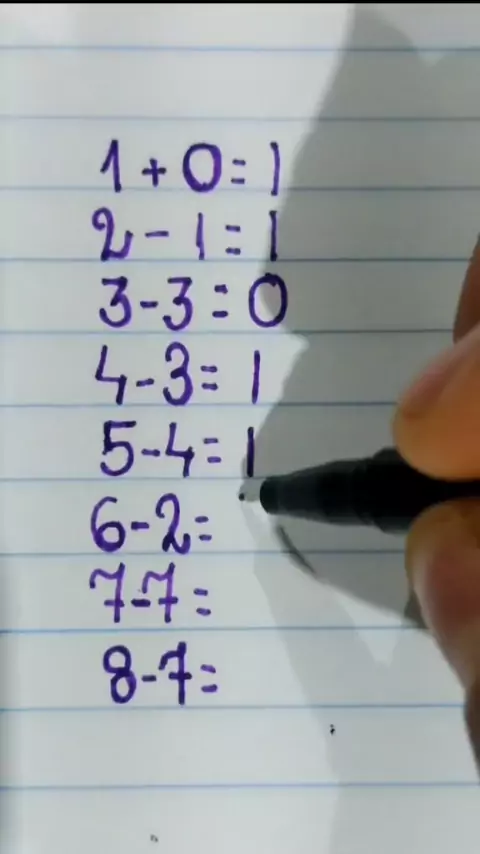 1 + 0 = 1
2 - 1 = 1
3 - 3 = 0
4 - 3 = 1
5 - 4 = 1
6 - 2 =
7 - 7 =
8 - 7 =